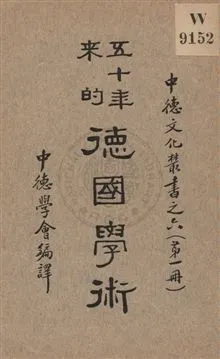 W
9152
中德文化叢書之六(第一冊)
五十年
來的
德國學術
中德學會編譯